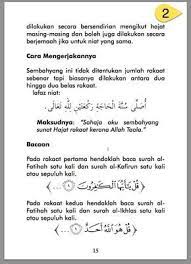 2
dilakukan secara bersendirian mengikut hajat
masing-masing dan boleh juga dilakukan secara
berjemaah jika untuk niat yang sama.
Cara Mengerjakannya
Sembahyang ini tidak ditentukan jumlah rakaat
sebenar tapi biasanya dilakukan antara dua
hingga dua belas rakaat.
lafaz niat:
أُصَلِّي سُنَّةَ الْحَاجَةِ رَكْعَتَيْنِ لِلّٰهِ تَعَالَى.
Maksudnya: "Sahaja aku sembahyang
sunat Hajat rakaat kerana Allah Taala."
Bacaan
Pada rakaat pertama hendaklah baca surah al-
Fatihah satu kali dan surah al-Kafirun satu kali
atau sepuluh kali.
﴿قُلْ يٰٓأَيُّهَا الْكٰفِرُونَ ...﴾
Pada rakaat kedua hendaklah baca surah al-
Fatihah satu kali dan surah al-Ikhlas satu kali
atau sepuluh kali.
﴿قُلْ هُوَ اللّٰهُ أَحَدٌ ...﴾
15